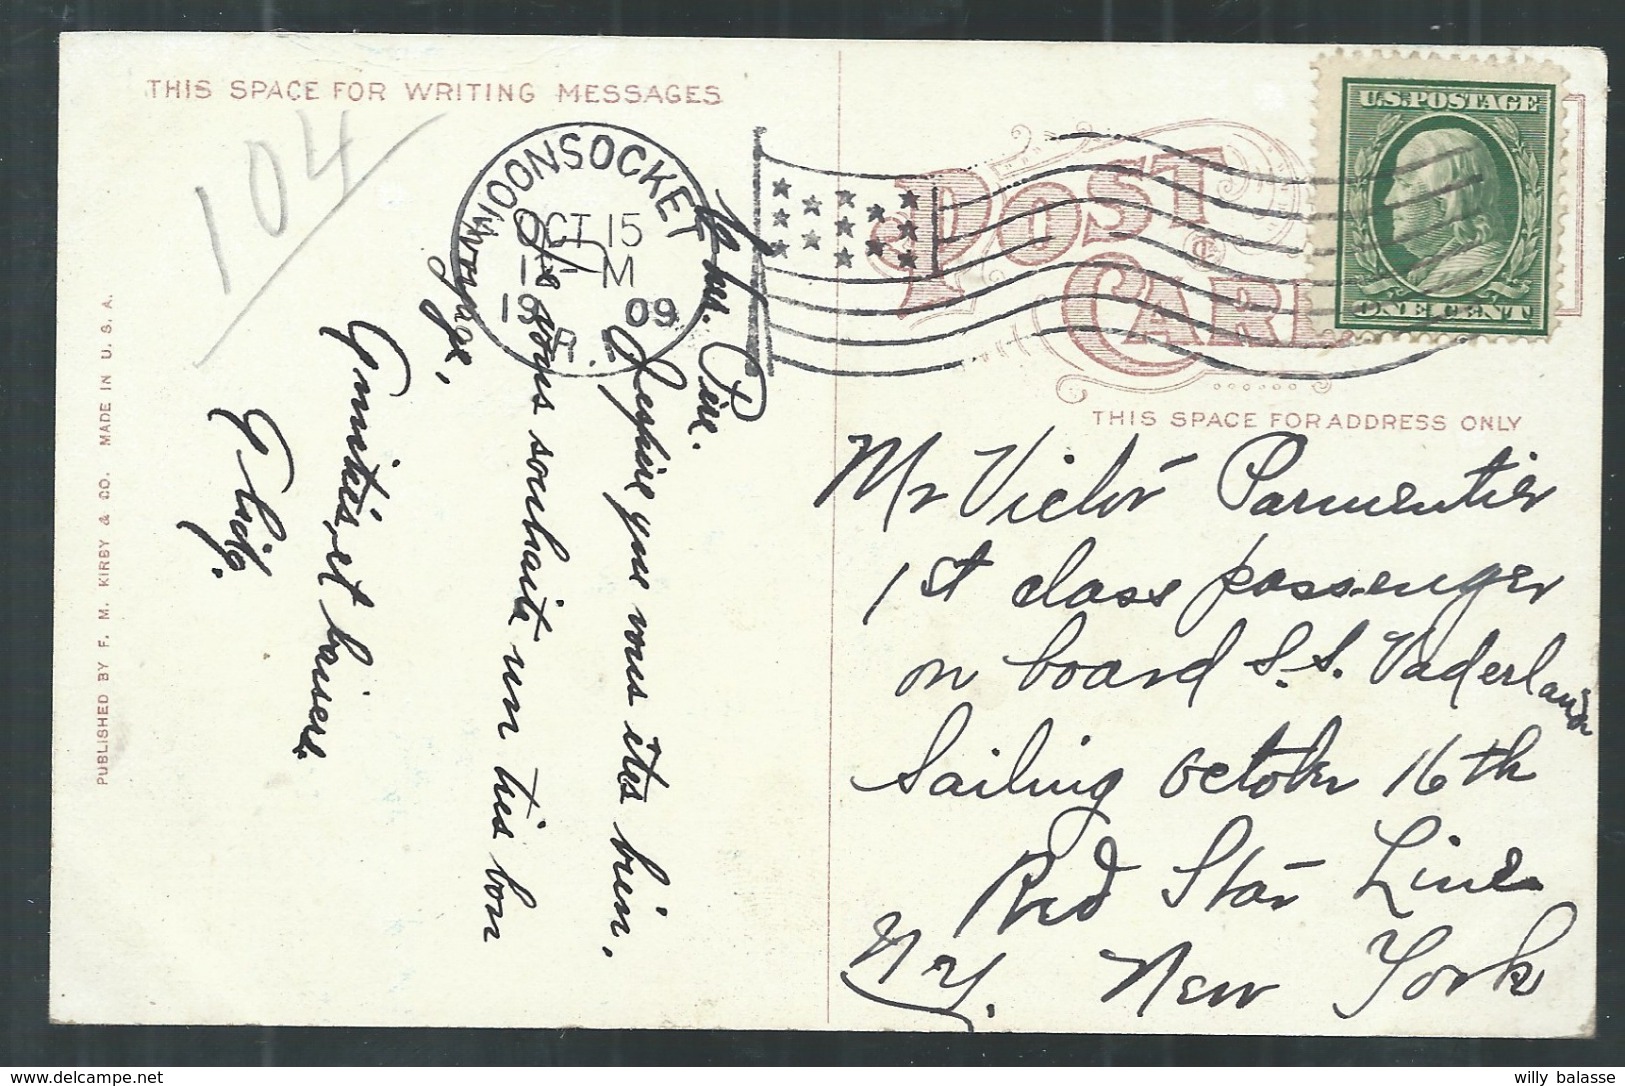 THIS SPACE FOR WRITING MESSAGES
104
WOONSOCKET
OCT 15
1 M
1909
R.I.
U.S. POSTAGE
ONE CENT
POST
CARD
THIS SPACE FOR ADDRESS ONLY
Mr Victor Parmentier
1st class passenger
on board S.S. Vaderland
Sailing October 16th
Red Star Line
N.Y. New York
Père.
J'espère que vous êtes bien.
Je vous souhaite un très bon
voyage,
Amitiés et baisers.
PUBLISHED BY F. M. KIRBY & CO. MADE IN U. S. A.
willy balasse